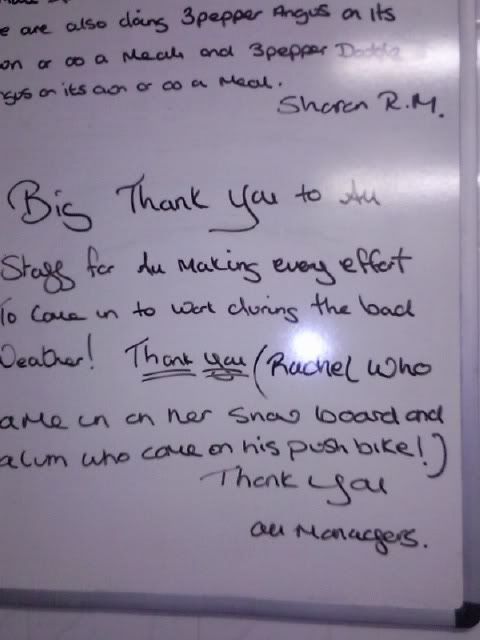 e are also doing 3pepper Angus on its
on or as a Meal and 3pepper Double
ngus on its own or as a Meal.
Sharon R.M.
Big Thank you to All
Staff for All Making every effort
To Come in to work during the bad
Weather! Thank you (Rachel who
ame in on her Snow board and
alum who came on his push bike!)
Thank you
all Managers.